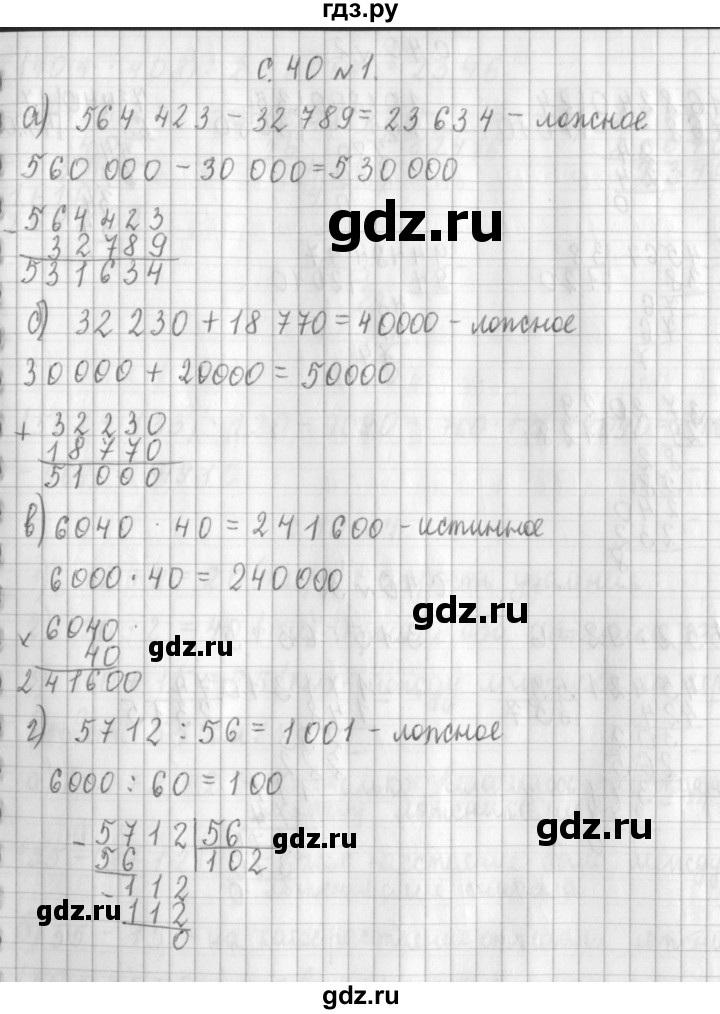 гдз.ру
с. 40 №1.
а) 564 423 - 32 789 = 23 634 - ложное
560 000 - 30 000 = 530 000
gdz.ru
- 564423
32789
531634
б) 32 230 + 18 770 = 40000 - ложное
30 000 + 20000 = 50000
+ 32230
18770
51000
в) 6040 · 40 = 241 600 - истинное
6000 · 40 = 240 000
gdz.ru
× 6040
40
gdz.ru
241600
г) 5712 : 56 = 1001 - ложное
6000 : 60 = 100
gdz.ru
- 5712 | 56
gdz.ru
56 | 102
- 112
gdz.ru
112
0
gdz.ru